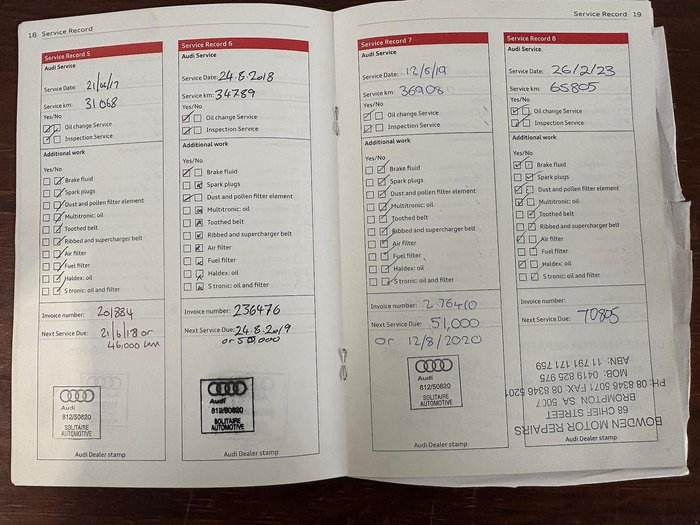 18 Service Record
Service Record 5
Audi Service
Service Date: 21/6/17
Service km: 31 068
Yes/No
Oil change Service
Inspection Service
Additional work
Yes/No
Brake fluid
Spark plugs
Dust and pollen filter element
Multitronic: oil
Toothed belt
Ribbed and supercharger belt
Air filter
Fuel filter
Haldex: oil
S tronic: oil and filter
Invoice number: 201884
Next Service Due: 21/6/18 or
46,000 km
Audi
812/50620
SOLITAIRE
AUTOMOTIVE
Audi Dealer stamp
Service Record 6
Audi Service
Service Date: 24.8.2018
Service km: 34789
Yes/No
Oil change Service
Inspection Service
Additional work
Yes/No
Brake fluid
Spark plugs
Dust and pollen filter element
Multitronic: oil
Toothed belt
Ribbed and supercharger belt
Air filter
Fuel filter
Haldex: oil
S tronic: oil and filter
Invoice number: 236476
Next Service Due: 24.8.2019
or 50,000
Audi
812/50620
SOLITAIRE
AUTOMOTIVE
Audi Dealer stamp
Service Record 19
Service Record 7
Audi Service
Service Date: 12/8/19
Service km: 36908
Yes/No
Oil change Service
Inspection Service
Additional work
Yes/No
Brake fluid
Spark plugs
Dust and pollen filter element
Multitronic: oil
Toothed belt
Ribbed and supercharger belt
Air filter
Fuel filter
Haldex: oil
S tronic: oil and filter
Invoice number: 276410
Next Service Due: 51,000
or 12/8/2020
Audi
812/50620
SOLITAIRE
AUTOMOTIVE
Audi Dealer stamp
Service Record 8
Audi Service
Service Date: 26/2/23
Service km: 65805
Yes/No
Oil change Service
Inspection Service
Additional work
Yes/No
Brake fluid
Spark plugs
Dust and pollen filter element
Multitronic: oil
Toothed belt
Ribbed and supercharger belt
Air filter
Fuel filter
Haldex: oil
S tronic: oil and filter
Invoice number:
Next Service Due: 70805
BOWDEN MOTOR REPAIRS
68 CHIEF STREET
BROMPTON SA 5007
PH: 08 8346 5071 FAX 08 8346 5201
MOB: 0419 825 975
ABN: 11 791 171 759
Audi Dealer stamp